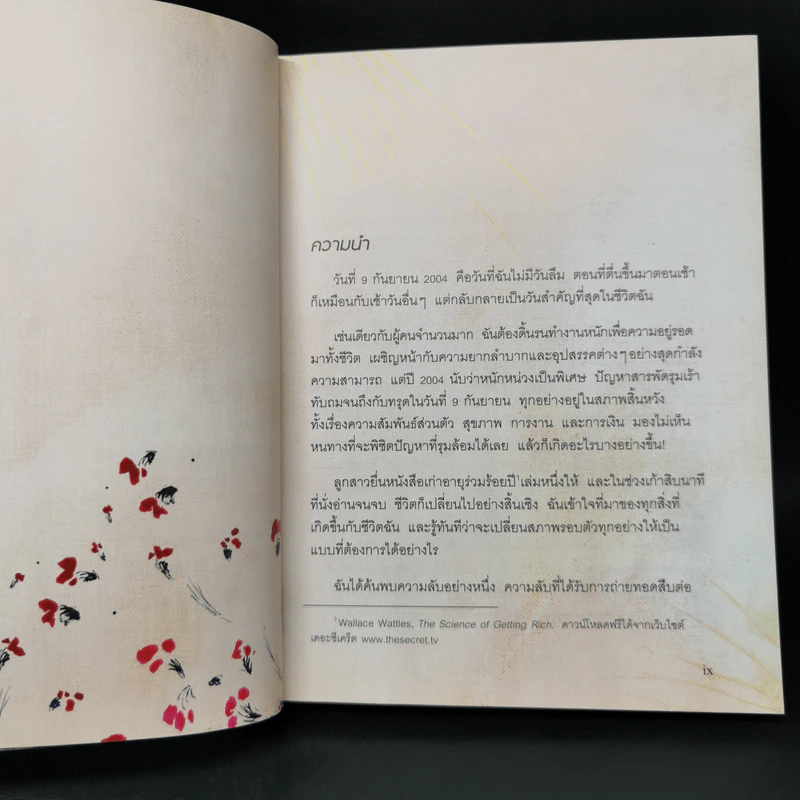 ความนำ
วันที่ 9 กันยายน 2004 คือวันที่ฉันไม่มีวันลืม ตอนที่ตื่นขึ้นมาตอนเช้า
ก็เหมือนกับเช้าวันอื่นๆ แต่กลับกลายเป็นวันสำคัญที่สุดในชีวิตฉัน
เช่นเดียวกับผู้คนจำนวนมาก ฉันต้องดิ้นรนทำงานหนักเพื่อความอยู่รอด
มาทั้งชีวิต เผชิญหน้ากับความยากลำบากและอุปสรรคต่างๆอย่างสุดกำลัง
ความสามารถ แต่ปี 2004 นับว่าหนักหน่วงเป็นพิเศษ ปัญหาสารพัดรุมเร้า
ทับถมจนถึงกับทรุดในวันที่ 9 กันยายน ทุกอย่างอยู่ในสภาพสิ้นหวัง
ทั้งเรื่องความสัมพันธ์ส่วนตัว สุขภาพ การงาน และการเงิน มองไม่เห็น
หนทางที่จะพิชิตปัญหาที่รุมล้อมได้เลย แล้วก็เกิดอะไรบางอย่างขึ้น!
ลูกสาวยื่นหนังสือเก่าอายุร่วมร้อยปี¹เล่มหนึ่งให้ และในช่วงเก้าสิบนาที
ที่นั่งอ่านจนจบ ชีวิตก็เปลี่ยนไปอย่างสิ้นเชิง ฉันเข้าใจที่มาของทุกสิ่งที่
เกิดขึ้นกับชีวิตฉัน และรู้ทันทีว่าจะเปลี่ยนสภาพรอบตัวทุกอย่างให้เป็น
แบบที่ต้องการได้อย่างไร
ฉันได้ค้นพบความลับอย่างหนึ่ง ความลับที่ได้รับการถ่ายทอดสืบต่อ
¹Wallace Wattles, The Science of Getting Rich. ดาวน์โหลดฟรีได้จากเว็บไซต์
เดอะซีเคร็ต www.thesecret.tv
ix